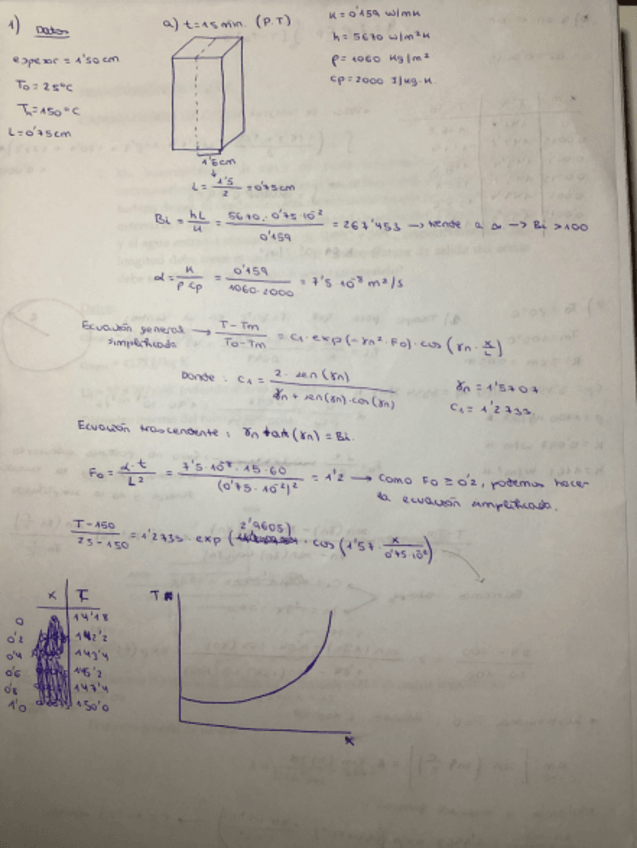 1) Datos
a) t=15 min. (P.T)
K=0'159 W/mK
espesor = 1'50 cm
h=5670 W/m²K
T₀=25°C
ρ=1060 Kg/m³
Th=150°C
Cp=2000 J/kg·K
L=0'75cm
1'5cm
L= 1'5/2 =0'75cm
Bi = hL/K = 5670·0'75·10⁻²/0'159 = 267'453 → tiende a ∞ → Bi >100
α= K/ρ Cp = 0'159/1060·2000 = 7'5 10⁻⁸ m²/s
Ecuación general simplificada → T-Tm/To-Tm = C₁·exp(-γn²·Fo)·cos(γn·x/L)
Donde: C₁ = 2·sen(γn)/γn + sen(γn)·cos(γn)
γn=1'5707
C₁=1'2733
Ecuación trascendente: γn tan(γn) = Bi.
Fo= α·t/L² = 7'5·10⁻⁸·15·60/(0'75·10⁻²)² = 1'2 → como Fo ≥ 0'2, podemos hacer
la ecuación simplificada.
T-150/25-150 = 1'2733 exp (2'9605)·cos(1'57· x/0'75·10⁻²)
x T
0 141'8
0'2 142'2
0'4 143'4
0'6 145'2
0'8 147'4
1'0 150'0
T
x